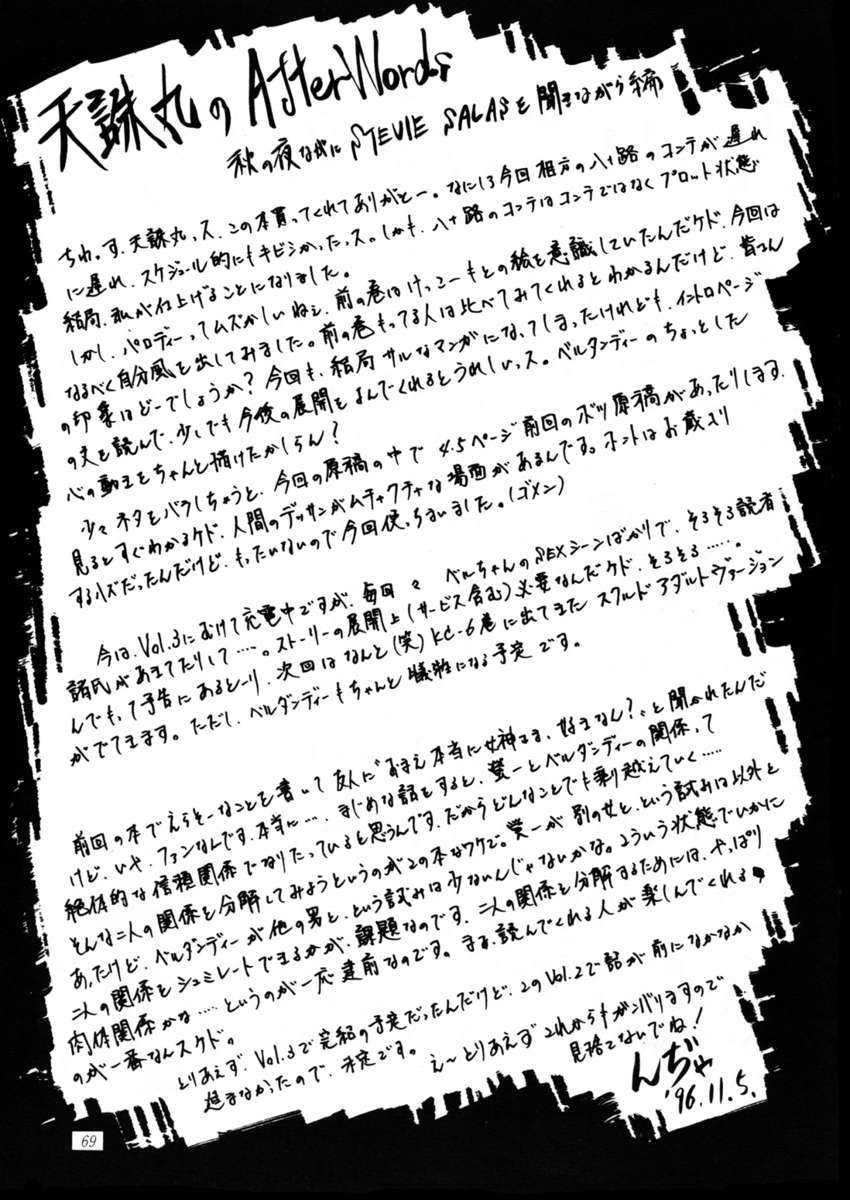 天誅丸のAfterWords
秋の夜ながにSTEVIE SALASを聞きながら編
ちわっす、天誅丸っス、この本買ってくれてありがとー。なにしろ今回相方の八十路のコンテが遅れ
に遅れ、スケジュール的にもキビシかったっス。しかも、八十路のコンテはコンテではなくプロット状態
結局、私が仕上げることになりました。
しかし、パロディーってムズかしいねェ、前の巻はけっこーもとの絵を意識していたんだケド、今回は
なるべく自分風を出してみました。前の巻もってる人は比べてみてくれるとわかるんだけど、皆さん
の印象はどーでしょうか?今回も、結局サルなマンガになってしまったけれども、イントロページ
の文を読んで、少しでも今後の展開をよんでくれるとうれしいっス。ベルダンディーのちょっとした
心の動きをちゃんと描けたかしらん?
少々ネタをバラしちゃうと、今回の原稿の中で4.5ページ前回のボツ原稿があったりします、
見るとすぐわかるケド、人間のデッサンがムチャクチャな場面があるんです。ホントはお蔵入り
するハズだったんだけど、もったいないので今回使っちまいました。(ゴメン)
今は、Vol.3にむけて充電中ですが、毎回々ベルちゃんのSEXシーンばかりで、そろそろ読者
諸氏があきてたりして‥‥。ストーリーの展開上(サービス含む)必要なんだケド、そろそろ‥‥‥。
んでもって予告にあるとーり、次回はなんと(笑)KC-6巻に出てきたスクルドアダルトヴァージョン
がでてきます。ただし、ベルダンディーもちゃんと犠牲になる予定です。
前回の本でえらそーなことを書いて友人に"おまえ本当に女神さま、好きなん?"と聞かれたんだ
けど、いや、ファンなんです、本当に‥‥、まじめな話をすると、螢一とベルダンディーの関係って
絶体的な信頼関係でなりたっていると思うんです、だからどんなことでも乗り越えていく‥‥‥
そんな二人の関係を分解してみようというのがこの本なワケで。螢一が別の女と、という試みは以外と
あったけど、ベルダンディーが他の男と、という試みは少ないんじゃないかな。こういう状態でいかに
二人の関係をシュミレートできるかが、課題なのです、二人の関係を分解するためには、やっぱり
肉体関係かな‥‥‥というのが一応建前なのです。まあ、読んでくれる人が楽しんでくれる
のが一番なんスケド。
とりあえず、Vol.3で完結の予定だったんだけど、このVol.2で話が前になかなか
進まなかったので、未定です。
え～とりあえずこれからもガンバリますので
見捨てないでね!
んぢゃ
'96.11.5.
69